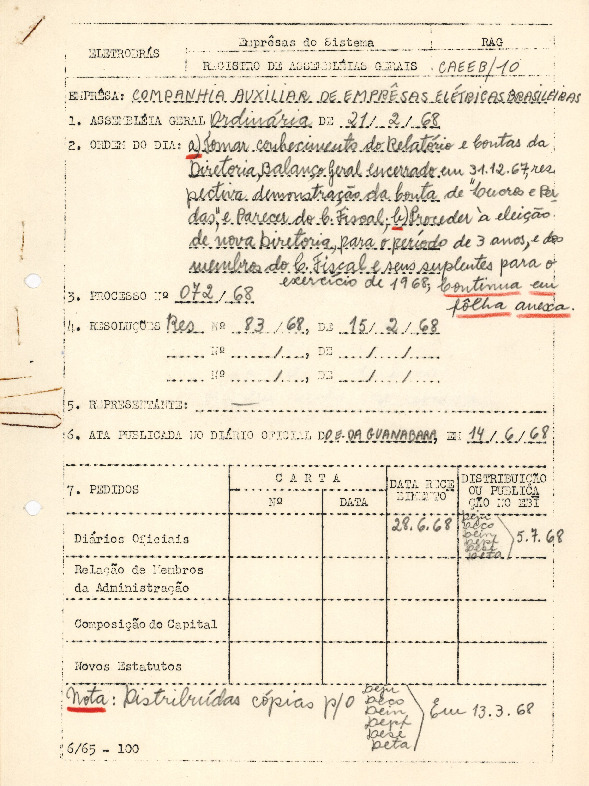 ELETROBRÁS
Emprêsas do Sistema
RAG
REGISTRO DE ASSEMBLÉIAS GERAIS
CAEEB/10
EMPRÊSA: COMPANHIA AUXILIAR DE EMPRÊSAS ELÉTRICAS BRASILEIRAS
1. ASSEMBLÉIA GERAL Ordinária DE 21/2/68
2. ORDEM DO DIA: a) Tomar conhecimento do Relatório e Contas da
Diretoria, Balanço Geral encerrado em 31.12.67, res
pectiva demonstração da Conta de "Lucros e Per
das", e Parecer do C. Fiscal; b) Proceder à eleição
de nova Diretoria, para o período de 3 anos, e dos
membros do C. Fiscal e seus suplentes para o
exercício de 1968; Continua em
fôlha anexa.
3. PROCESSO Nº 072/68
4. RESOLUÇÕES Res Nº 83/68, DE 15/2/68
Nº .../..., DE .../.../...
Nº .../..., DE .../.../...
5. REPRESENTANTE: —
6. ATA PUBLICADA NO DIÁRIO OFICIAL DO E. DA GUANABARA, EM 14/6/68
7. PEDIDOS
CARTA
Nº
DATA
DATA RECE
BIMENTO
DISTRIBUIÇÃO
OU PUBLICA
ÇÃO NO EBI
Diários Oficiais
28.6.68
Deco
5.7.68
Relação de Membros
da Administração
Composição do Capital
Novos Estatutos
Nota: Distribuídas cópias p/o
Deco
Em 13.3.68
6/65 - 100